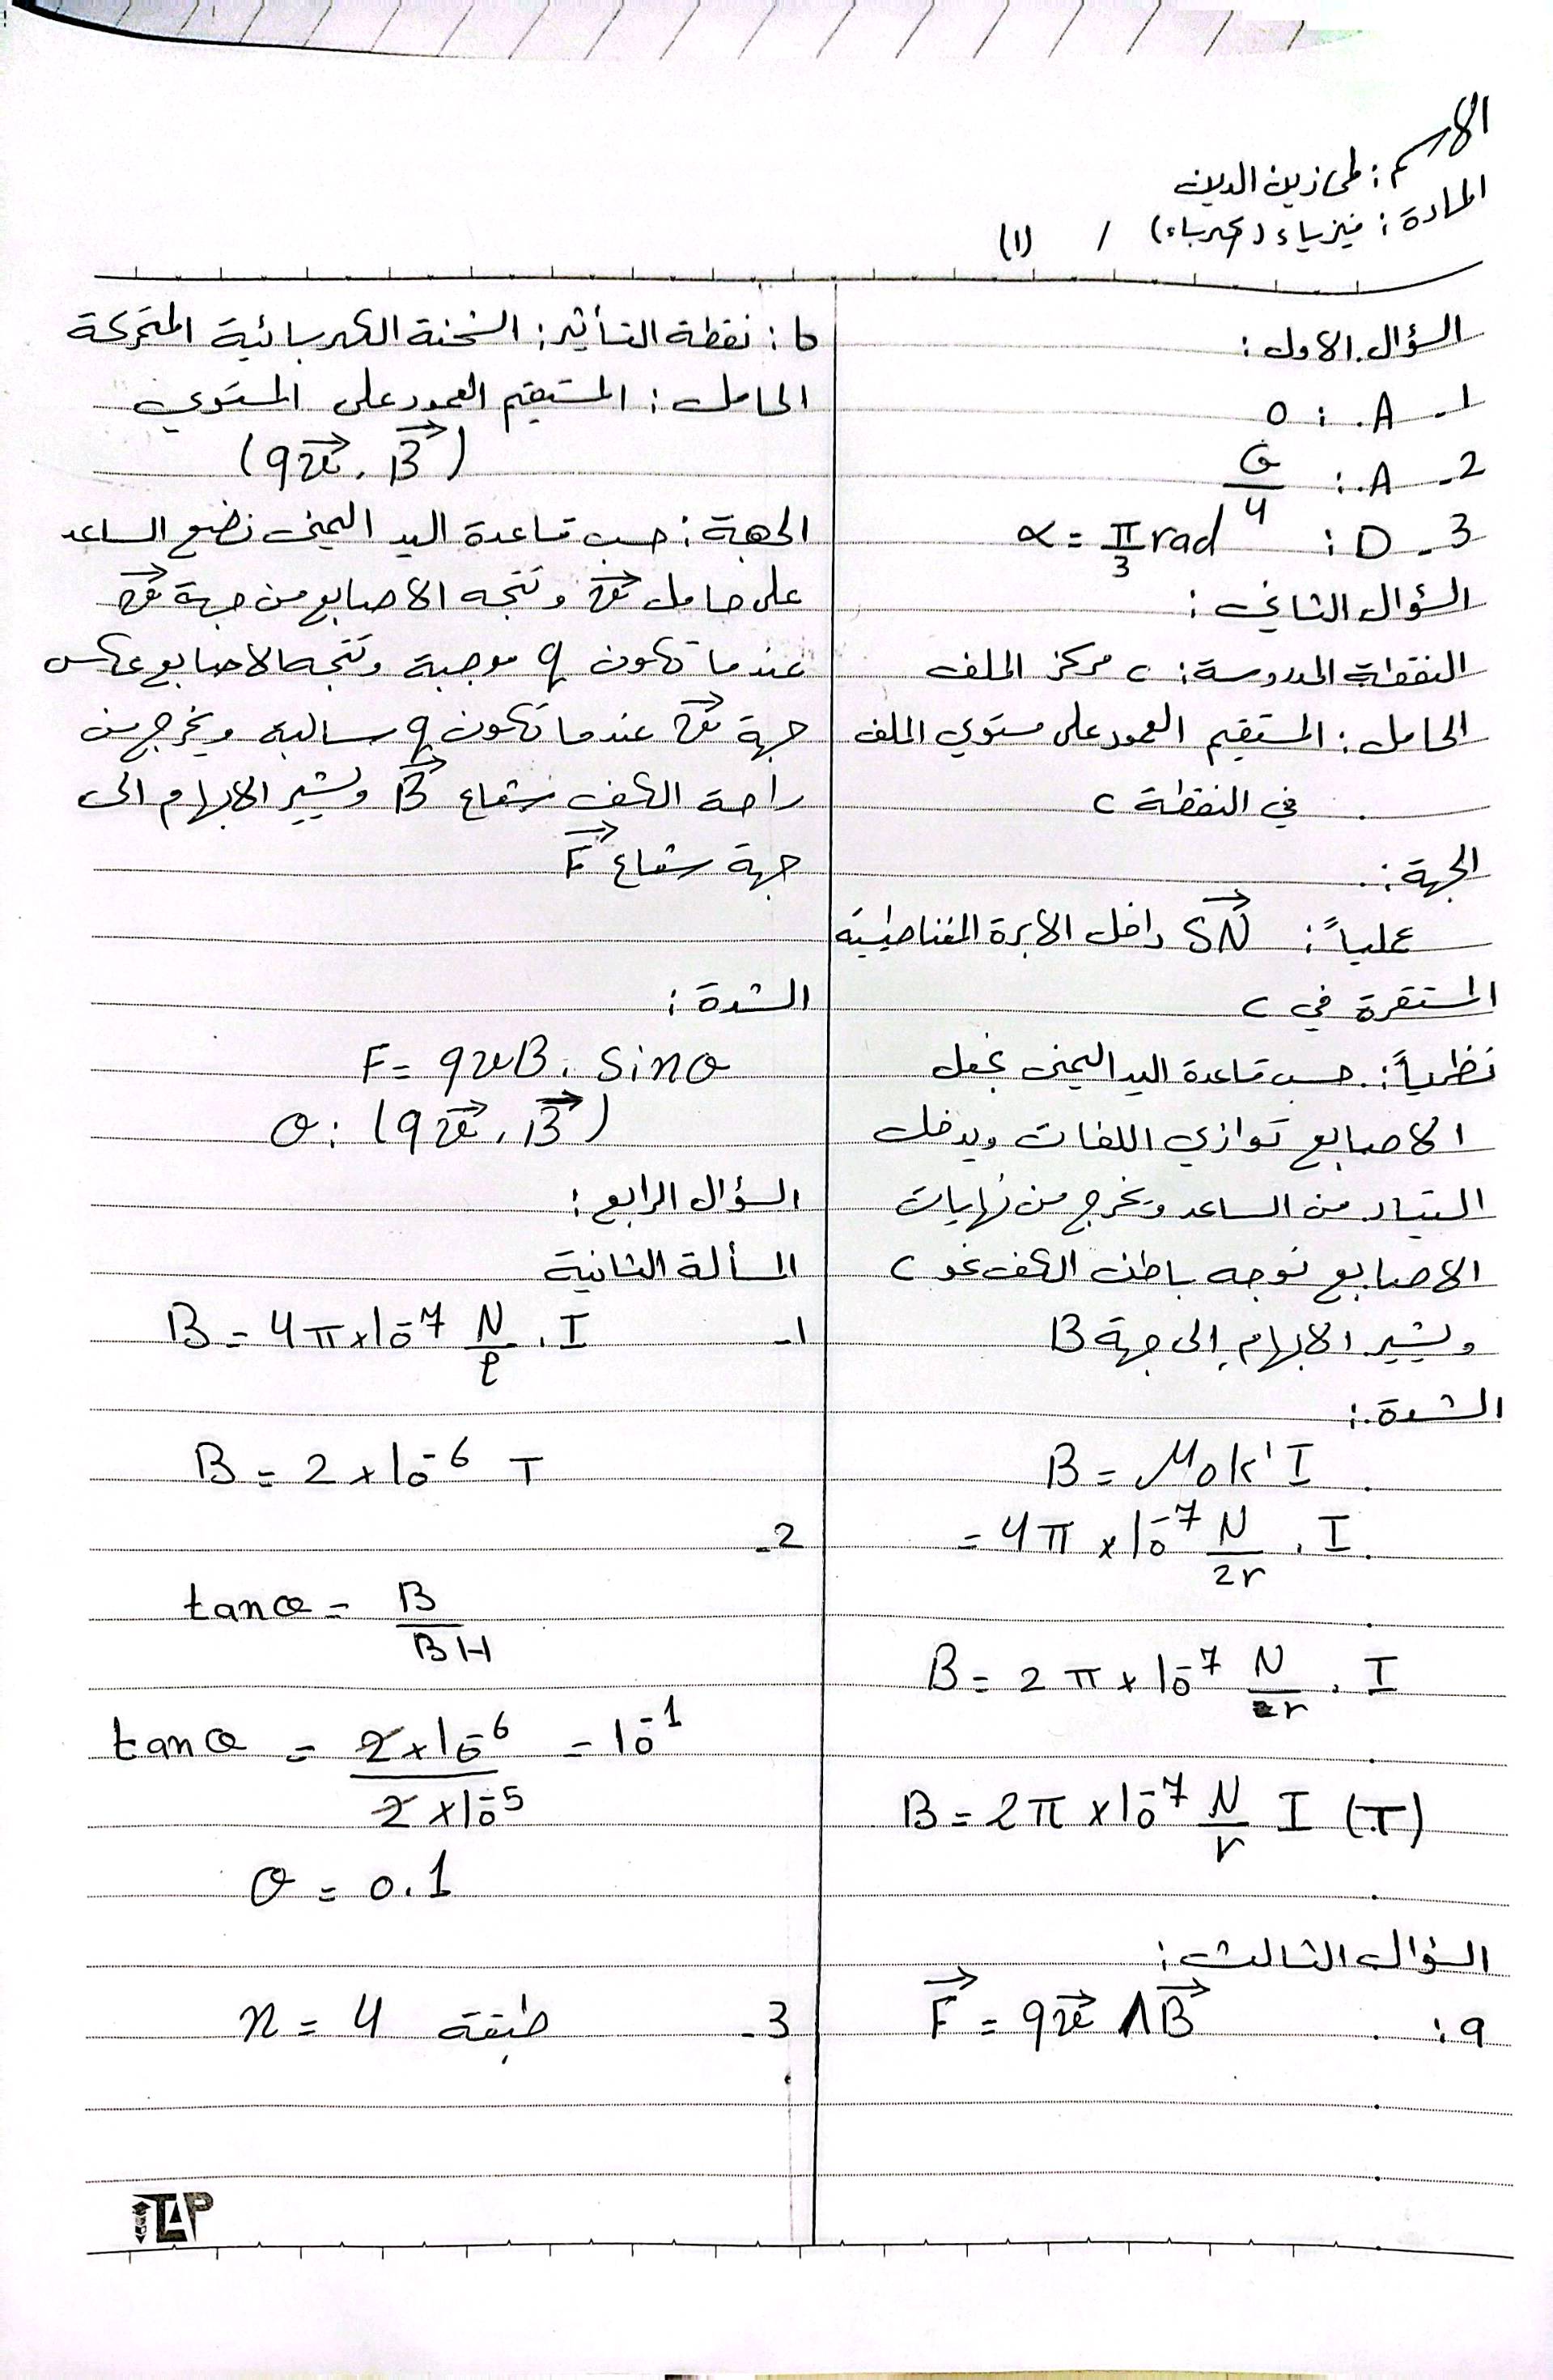 الاسم: طه زين الدين
المادة: فيزياء (كهرباء) / (1)
السؤال الاول:
1- A: 0
2- A: G/4
3- D: α = π/3 rad
السؤال الثاني:
النقطة المدروسة: c مركز الملف
الحامل: المستقيم العمود على مستوي الملف
في النقطة c
الجهة:
عملياً: SN داخل الابرة المغناطيسية
المستقرة في c
نظرياً: حسب قاعدة اليد اليمنى نجعل
الاصابع توازي اللفات ويدخل
التيار من الساعد ويخرج من نهايات
الاصابع نوجه باطن الكف نحو c
ويشير الابهام إلى جهة B
الشدة:
B = μ0 k' I
= 4π × 10^-7 N/2r . I
B = 2π × 10^-7 N/r . I
B = 2π × 10^-7 N/r I (T)
السؤال الثالث:
a: F⃗ = qv⃗ Λ B⃗
b: نقطة التأثير: الشحنة الكهربائية المتحركة
الحامل: المستقيم العمود على المستوي
(qv⃗ . B⃗)
الجهة: حسب قاعدة اليد اليمنى نضع الساعد
على حامل v⃗ وتتجه الاصابع من جهة v⃗
عندما تكون q موجبة وتتجه الاصابع عكس
جهة v⃗ عندما تكون q سالبة ويخرج من
راحة الكف شعاع B⃗ ويشير الابهام الى
جهة شعاع F⃗
الشدة:
F = qvB . sinθ
θ: (qv⃗ . B⃗)
السؤال الرابع:
المسألة الثانية
1- B = 4π×10^-7 N/ℓ . I
B = 2 × 10^-6 T
2-
tanθ = B/BH
tanθ = 2×10^-6 / 2×10^-5 = 10^-1
θ = 0.1
3- n = 4 طبقة
TAP